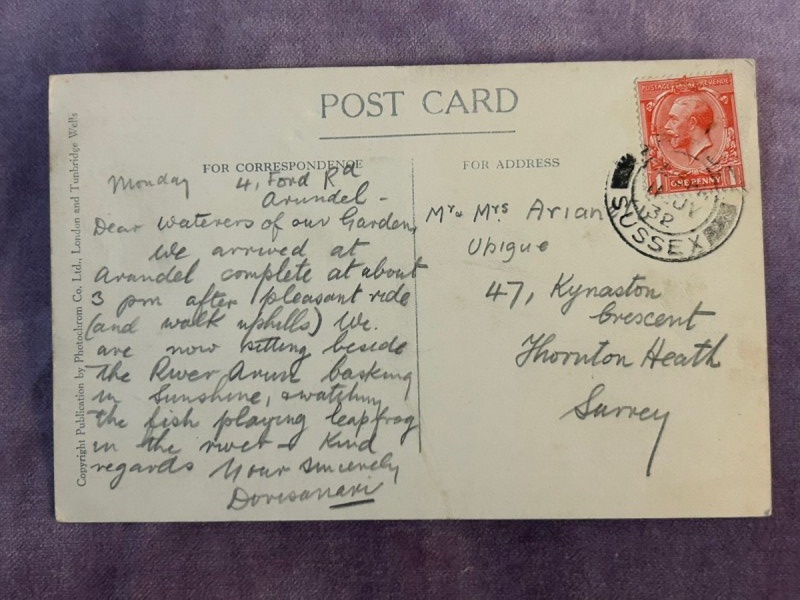 POST CARD
FOR CORRESPONDENCE
FOR ADDRESS
Copyright Publication by Photochrom Co. Ltd., London and Tunbridge Wells
Monday 4, Ford Rd
Arundel -
Dear Waterers of our Garden,
We arrived at
Arundel complete at about
3 pm after pleasant ride
(and walk uphills) We.
are now sitting beside
the River Arun basking
in Sunshine, & watching
the fish playing leapfrog
in the river - Kind
regards Your sincerely
Dorisanari
Mr & Mrs Arian
Ubique
47, Kynaston
Crescent
Thornton Heath
Surrey
ONE PENNY
32
SUSSEX